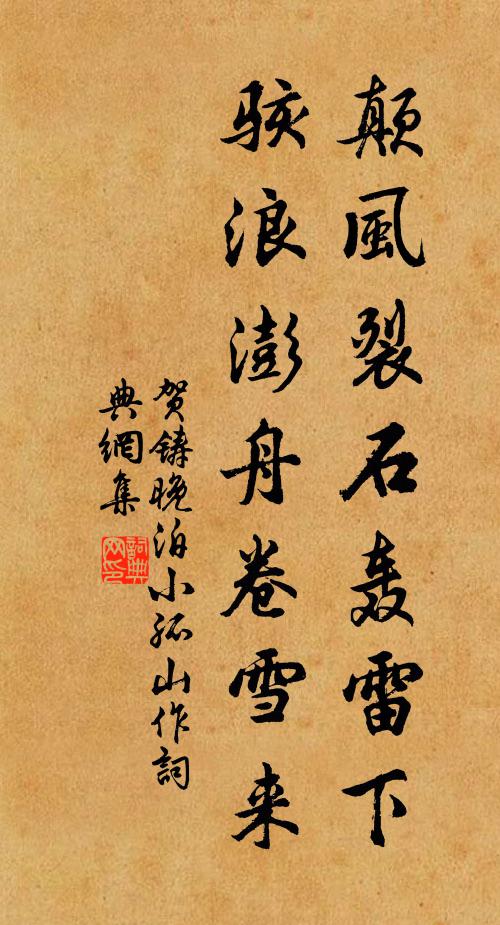 颠風裂石轰雷下
駭浪澎舟卷雪来
贺鑄晚泊小孤山作詞
典網集
詞典
网印